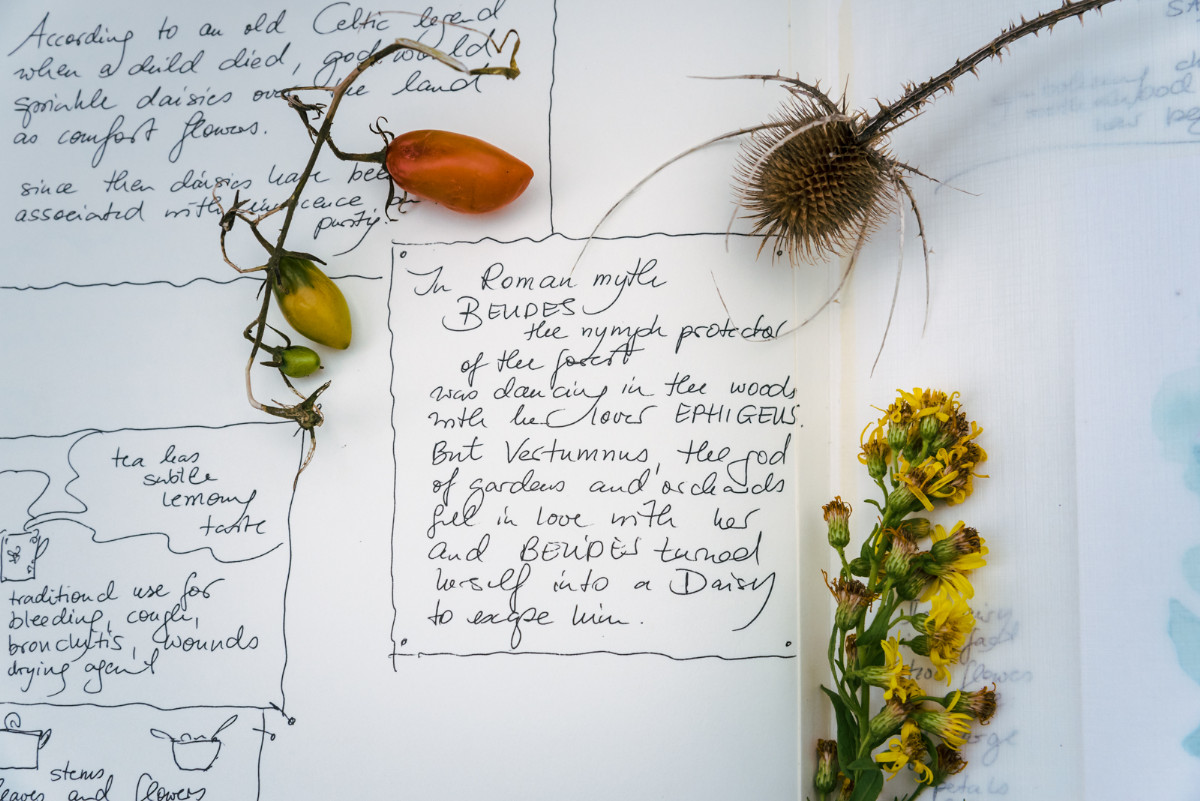 According to an old Celtic legend
when a child died, god would
sprinkle daisies over the land
as comfort flowers.
since then daisies have been
associated with innocence
purity.
In Roman myth
BELIDES
the nymph protector
of the forest
was dancing in the woods
with her lover EPHIGEUS.
But Vertumnus, the god
of gardens and orchards
fell in love with her
and BELIDES turned
herself into a Daisy
to escape him.
tea has
subtle
lemony
taste
traditional use for
bleeding, cough,
bronchytis, wounds
drying agent
stems
leaves and flowers
SA
flowers